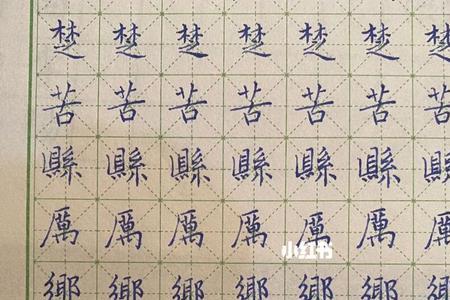 楚楚楚楚楚楚楚
苦苦苦苦苦苦苦
縣縣縣縣縣縣縣
厲厲厲厲厲厲厲
鄉鄉鄉鄉鄉鄉鄉
小红书